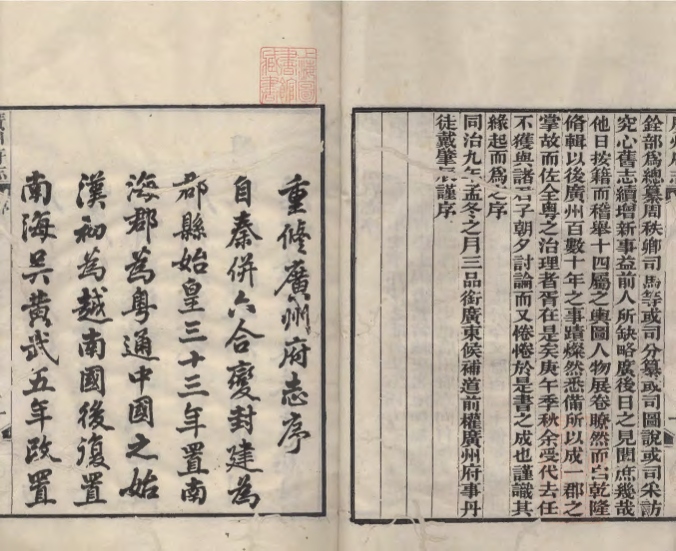 銓部爲總纂周秩卿司馬等或司分纂或司圖說或司采訪
究心舊志續增新事益前人所缺略廣後日之見聞庶幾哉
他日按籍而稽舉十四屬之輿圖人物展卷瞭然而自乾隆
脩輯以後廣州百數十年之事蹟燦然悉備所以成一郡之
掌故而佐全粵之治理者胥在是矣庚午季秋余受代去任
不獲與諸君子朝夕討論而又惓惓於是書之成也謹識其
緣起而爲之序
同治九年孟冬之月三品銜廣東候補道前權廣州府事丹
徒戴肇辰謹序
上海圖書館藏書
重修廣州府志序
自秦併六合變封建為
郡縣始皇三十三年置南
海郡為粵通中國之始
漢初為越南國後復置
南海吳黃武五年改置